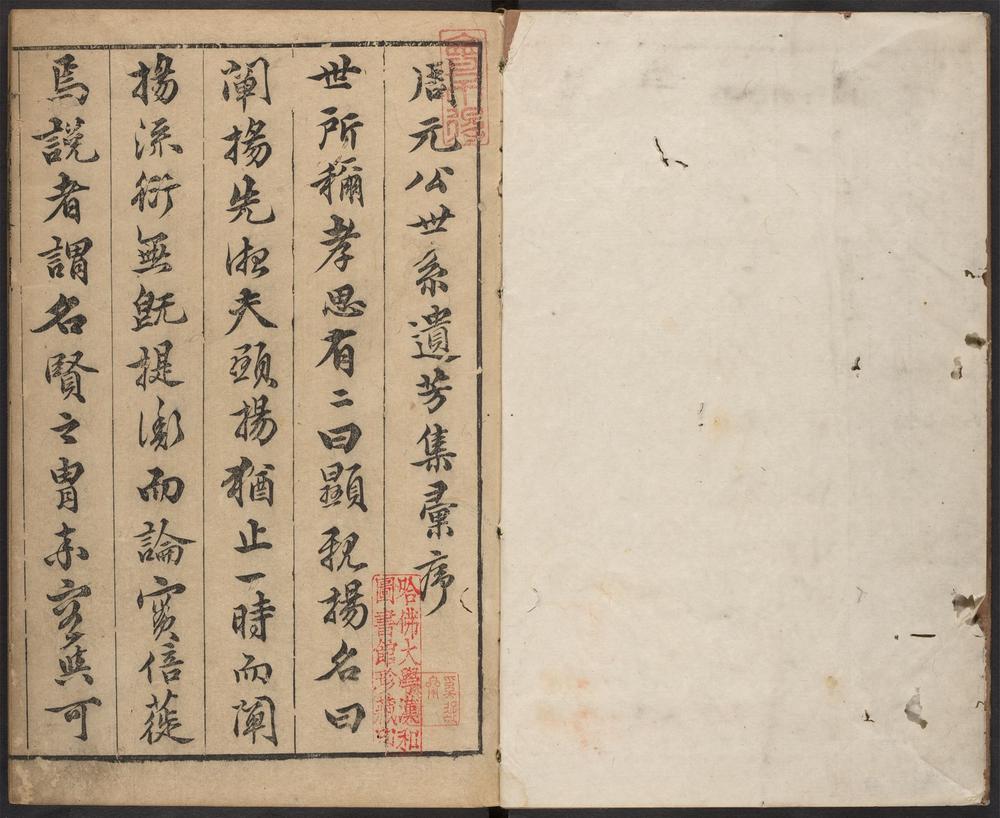 周元公世系遺芳集彙序
世所穪孝思有二曰顯親揚名曰
闡揚先淑夫顯揚猶止一時而闡
揚流衍無旣提衡而論寔倍蓰
焉説者謂名賢之冑可
哈佛大學漢和
圖書館珍藏印